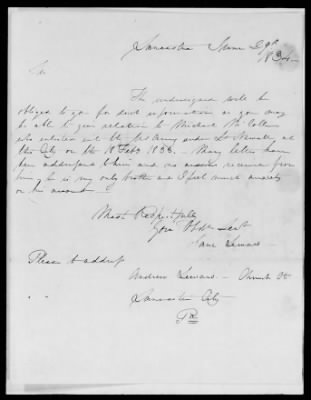 Lancaster June 29th
1834
Sir
The undersigned will be
obliged to you for such information as you may
be able to give relative to Michael McCollin
who enlisted into the Army under Lt
this City on the 18 Feby 1833. Many letters have
been addressed to him and no answer received from
him, he is my only brother and I feel much anxiety
on his account
Most Respectfully
Your Obt Sert
Jane Lemars
Please to address
Andrew Lemars - Church St
Lancaster City
Pa